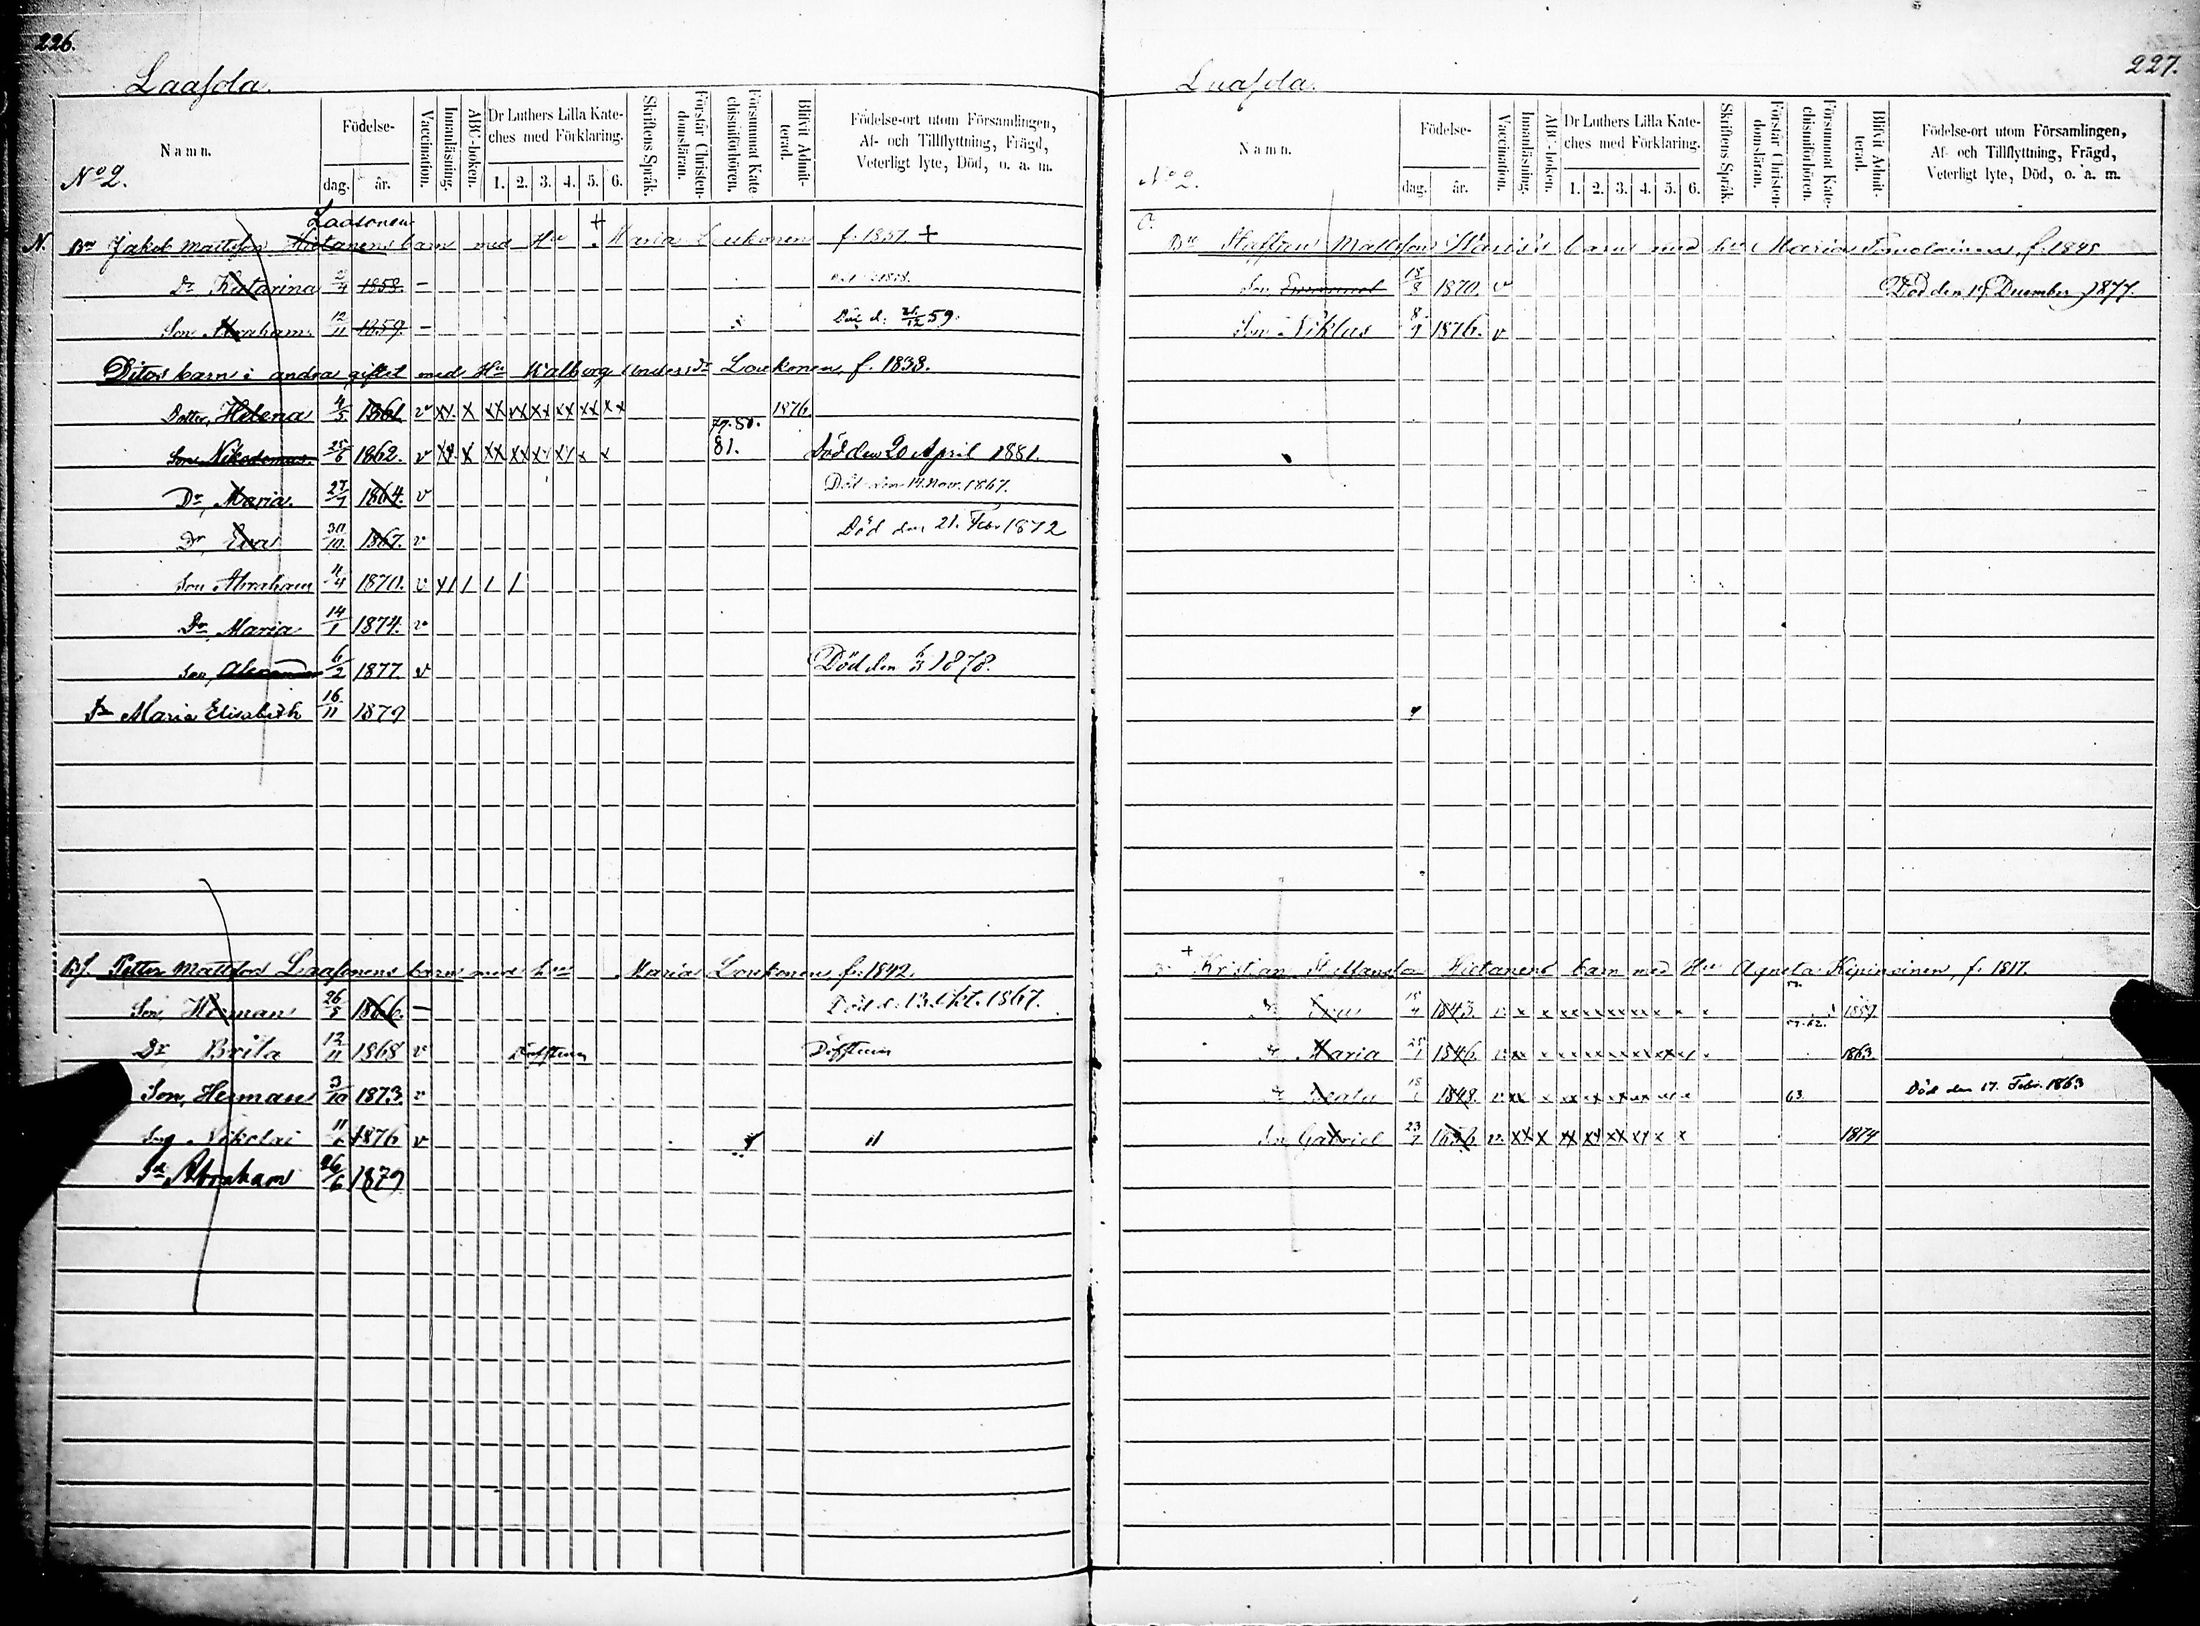 226.
Laasola.
Namn.
No 2.
Födelse-
dag. år.
Vaccination.
Innanläsning.
ABC-boken.
Dr Luthers Lilla Kate-
ches med Förklaring.
1. 2. 3. 4. 5. 6.
Skriftens Språk.
Förstår Christen-
domsläran.
Försummat Kate-
chismiförhören.
Blifvit Admit-
terad.
Födelse-ort utom Församlingen,
Af- och Tillflyttning, Frägd,
Veterligt lyte, Död, o. a. m.
Laasonen
N. Bn Jakob Mattsson Hietanens barn med Hu Maria Loukonen f. 1851. +
Dr Katarina 2/4 1858. –
Son Abraham 12/11 1859. – Död d. 21/12 59.
Ditos barn i andra giftet med Hu Walborg Andersdr Loukonen, f. 1838.
Dotter, Helena 4/5 1861 v xx x xx xx xx xx xx xx 1876
79. 80.
Son Nikodemus. 25/6 1862. v xx x xx xx xx xx x x 81. Död den 20 April 1881.
Dr, Maria. 27/7 1864. v Död den 14. Nov. 1867.
Dr, Eva 30/10 1867. v Död den 21. Feb. 1872
Son Abraham 4/4 1870. v x/ / / /
Dr, Maria 14/1 1874. v
Son, Alexander 6/2 1877. v Död den 6/3 1878.
Dr Maria Elisabeth 16/11 1879
Bf. Petter Mattsson Laasonens barn med hu Maria Loukonen f. 1842.
Son, Herman 26/5 1866. – Död d. 13. Okt. 1867.
Dr Brita 12/11 1868 v Döfstum Döfstum
Son, Herman 3/10 1873. v
Son Nikolai 11/6 1876 v "
Sn Abraham 26/6 1879
227.
Laasola.
Namn.
No 2.
Födelse-
dag. år.
Vaccination.
Innanläsning.
ABC-boken.
Dr Luthers Lilla Kate-
ches med Förklaring.
1. 2. 3. 4. 5. 6.
Skriftens Språk.
Förstår Christen-
domsläran.
Försummat Kate-
chismiförhören.
Blifvit Admit-
terad.
Födelse-ort utom Församlingen,
Af- och Tillflyttning, Frägd,
Veterligt lyte, Död, o. a. m.
Bn Staffan Mattsson barn med hu Maria f. 1845
Son 18/8 1870. v Död den 19 December 1877.
Son Niklus 8/9 1876. v
+ Kristian Hietanens barn med Hu Agneta Kipinoinen, f. 1817.
Dr Eva 18/4 1843. v x x xx xx xx xx x x 1859
57. 62.
Dr Maria 25/1 1846. v xx x xx xx xx xx xx x 1863
Dr Beata 18 1848. v xx x xx xx xx xx xx x 63. Död den 17. Febr. 1863
Son Gabriel 23/7 1856 v. xx x xx xx xx xx x x 1874